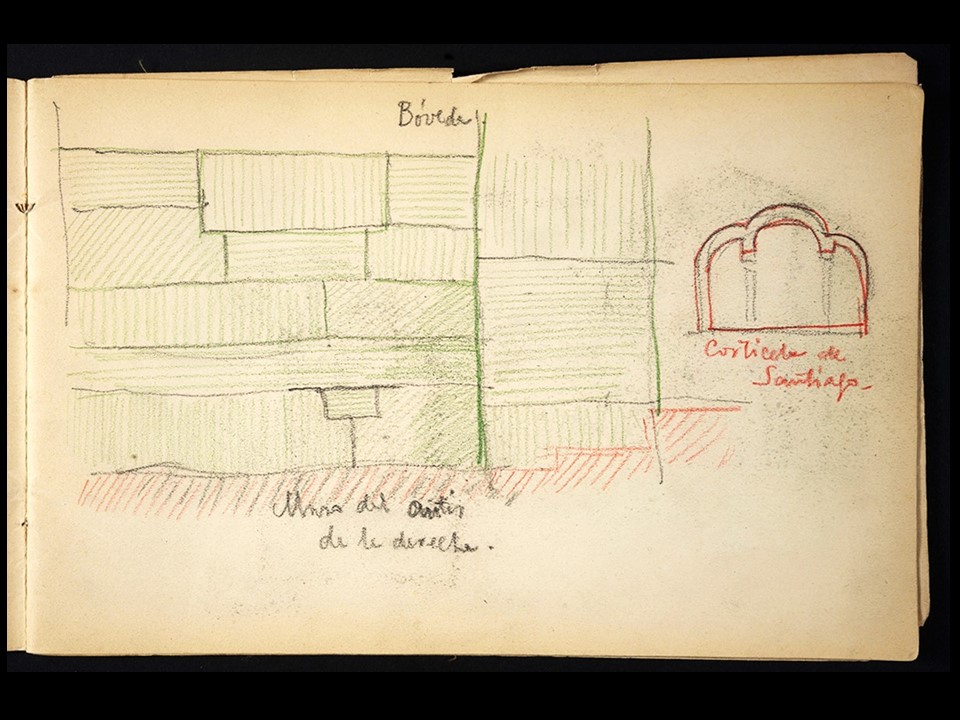 Bóveda
Corticela de
Santiago-
Muro del antis
de la derecha.